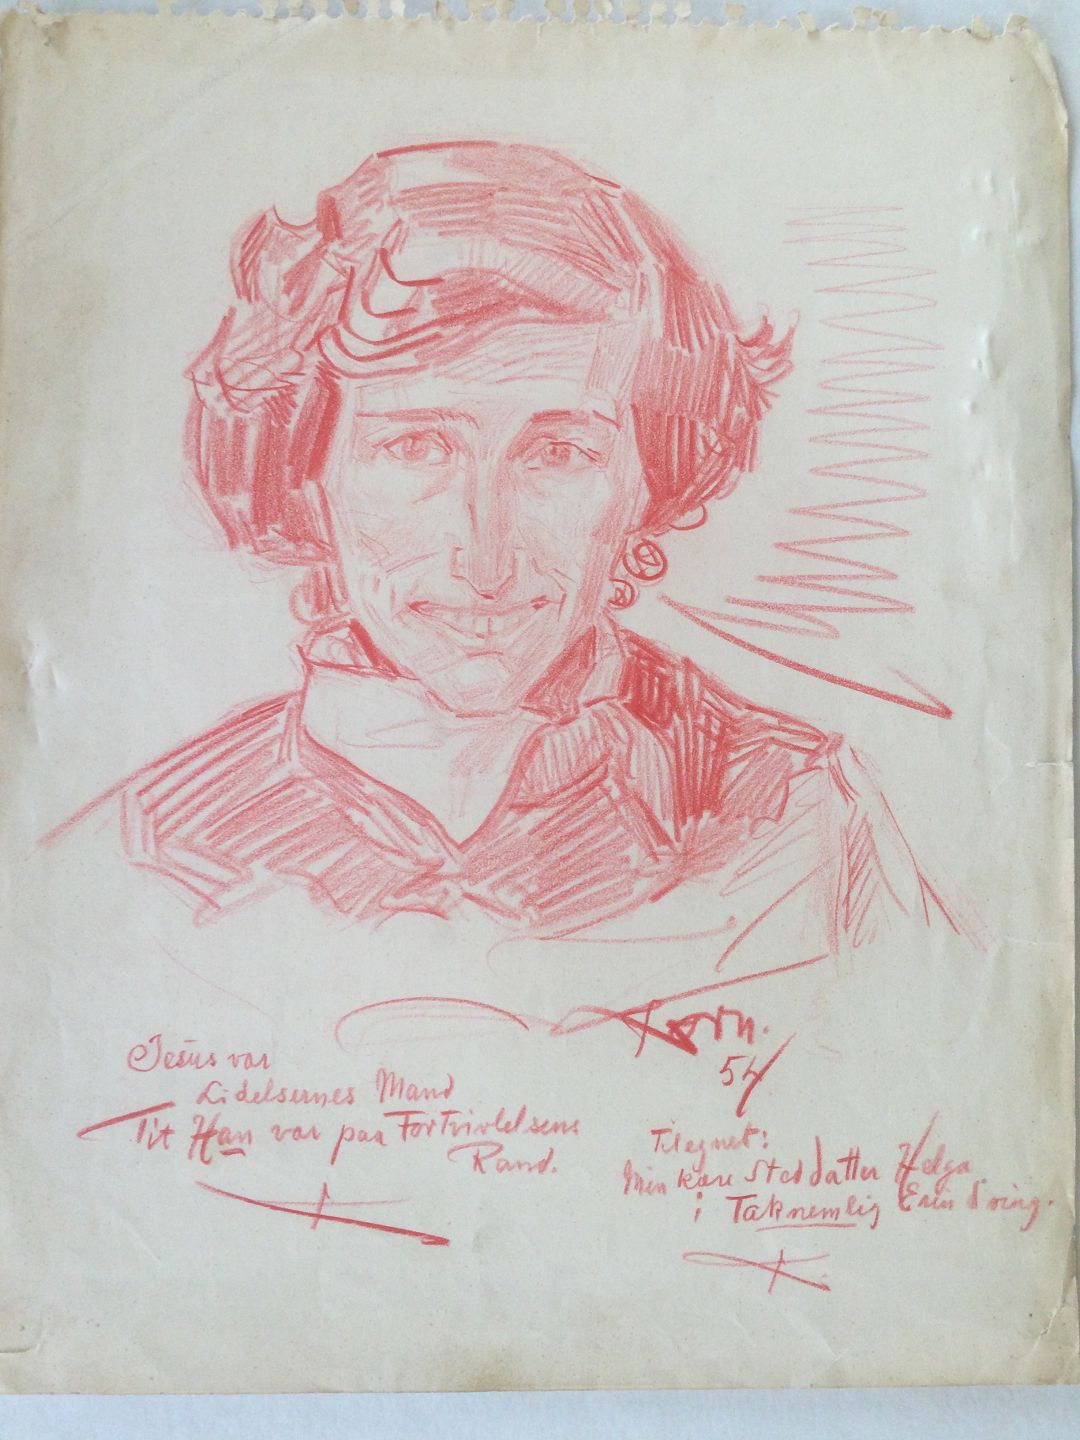 Jesus var
Lidelsernes Mand
Tit Han var paa Fortvivlelsens
Rand.
54
Tilegnet:
Min kære Steddatter Helga
i Taknemlig Erindring.